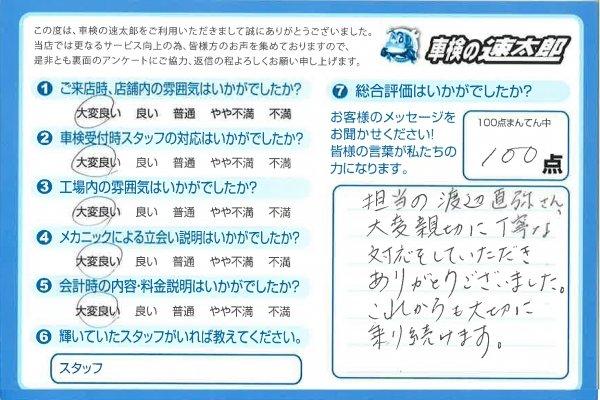 この度は、車検の速太郎をご利用いただきまして誠にありがとうございました。
当店では更なるサービス向上の為、皆様方のお声を集めておりますので、
是非とも裏面のアンケートにご協力、返信の程よろしくお願い申し上げます。
車検の速太郎
1 ご来店時、店舗内の雰囲気はいかがでしたか?
大変良い 良い 普通 やや不満 不満
2 車検受付時スタッフの対応はいかがでしたか?
大変良い 良い 普通 やや不満 不満
3 工場内の雰囲気はいかがでしたか?
大変良い 良い 普通 やや不満 不満
4 メカニックによる立会い説明はいかがでしたか?
大変良い 良い 普通 やや不満 不満
5 会計時の内容・料金説明はいかがでしたか?
大変良い 良い 普通 やや不満 不満
6 輝いていたスタッフがいれば教えてください。
スタッフ
7 総合評価はいかがでしたか?
お客様のメッセージを
お聞かせください!
皆様の言葉が私たちの
力になります。
100点まんてん中
100点
担当の渡辺直弥さん、
大変親切に丁寧な
対応をしていただき
ありがとうございました。
これからも大切に
乗り続けます。